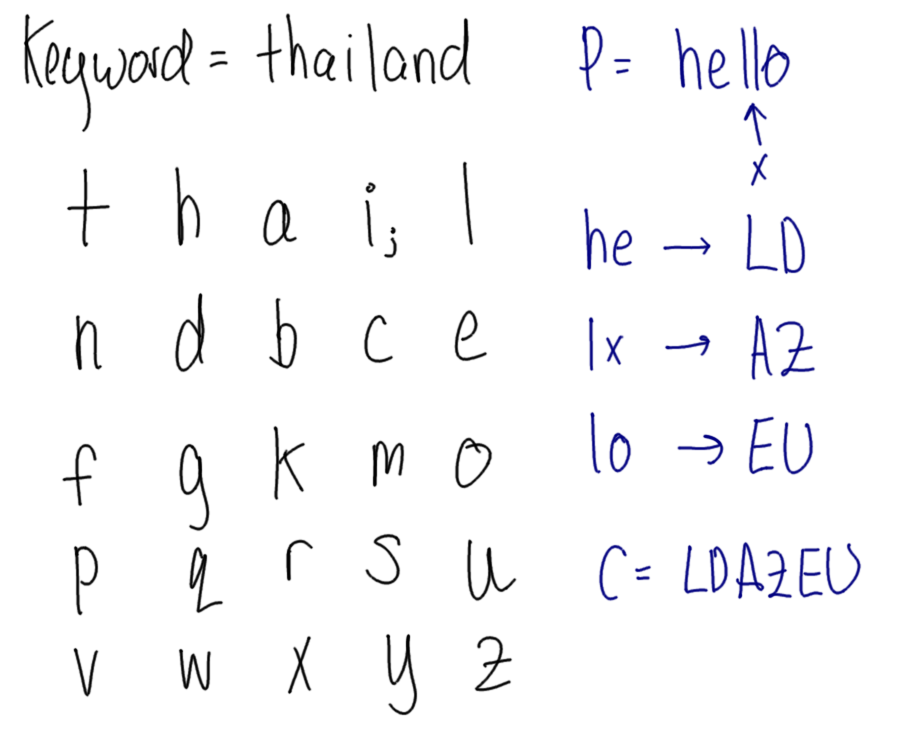 Keyword = thailand
t h a i, j l
n d b c e
f g k m o
p q r s u
v w x y z
P = hello
↑
x
he → LD
lx → AZ
lo → EU
C = LDAZEU